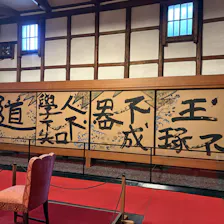 玉不
琢
不成
器
人不
學不
知
道